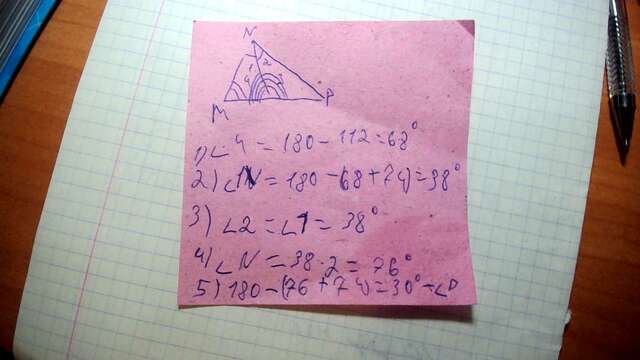 N
1 2
4 3
M P
1) ∠4 = 180 - 112 = 68°
2) ∠1 = 180 - (68 + 74) = 38°
3) ∠2 = ∠1 = 38°
4) ∠N = 38 · 2 = 76°
5) 180 - (76 + 74) = 30° - ∠P